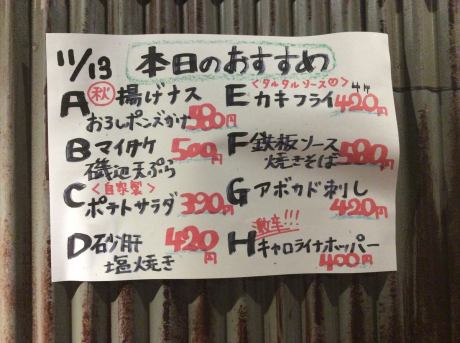 11/13 本日のおすすめ
A ㊙秋 揚げナス
おろしポンズかけ 580円
B マイタケ
磯辺天ぷら 500円
C <自家製>
ポテトサラダ 390円
D 砂肝
塩焼き 420円
E <タルタルソース♡>
カキフライ 420円
F 鉄板ソース
焼きそば 580円
G アボカド刺し
420円
激辛!!!
H キャロライナホッパー
400円